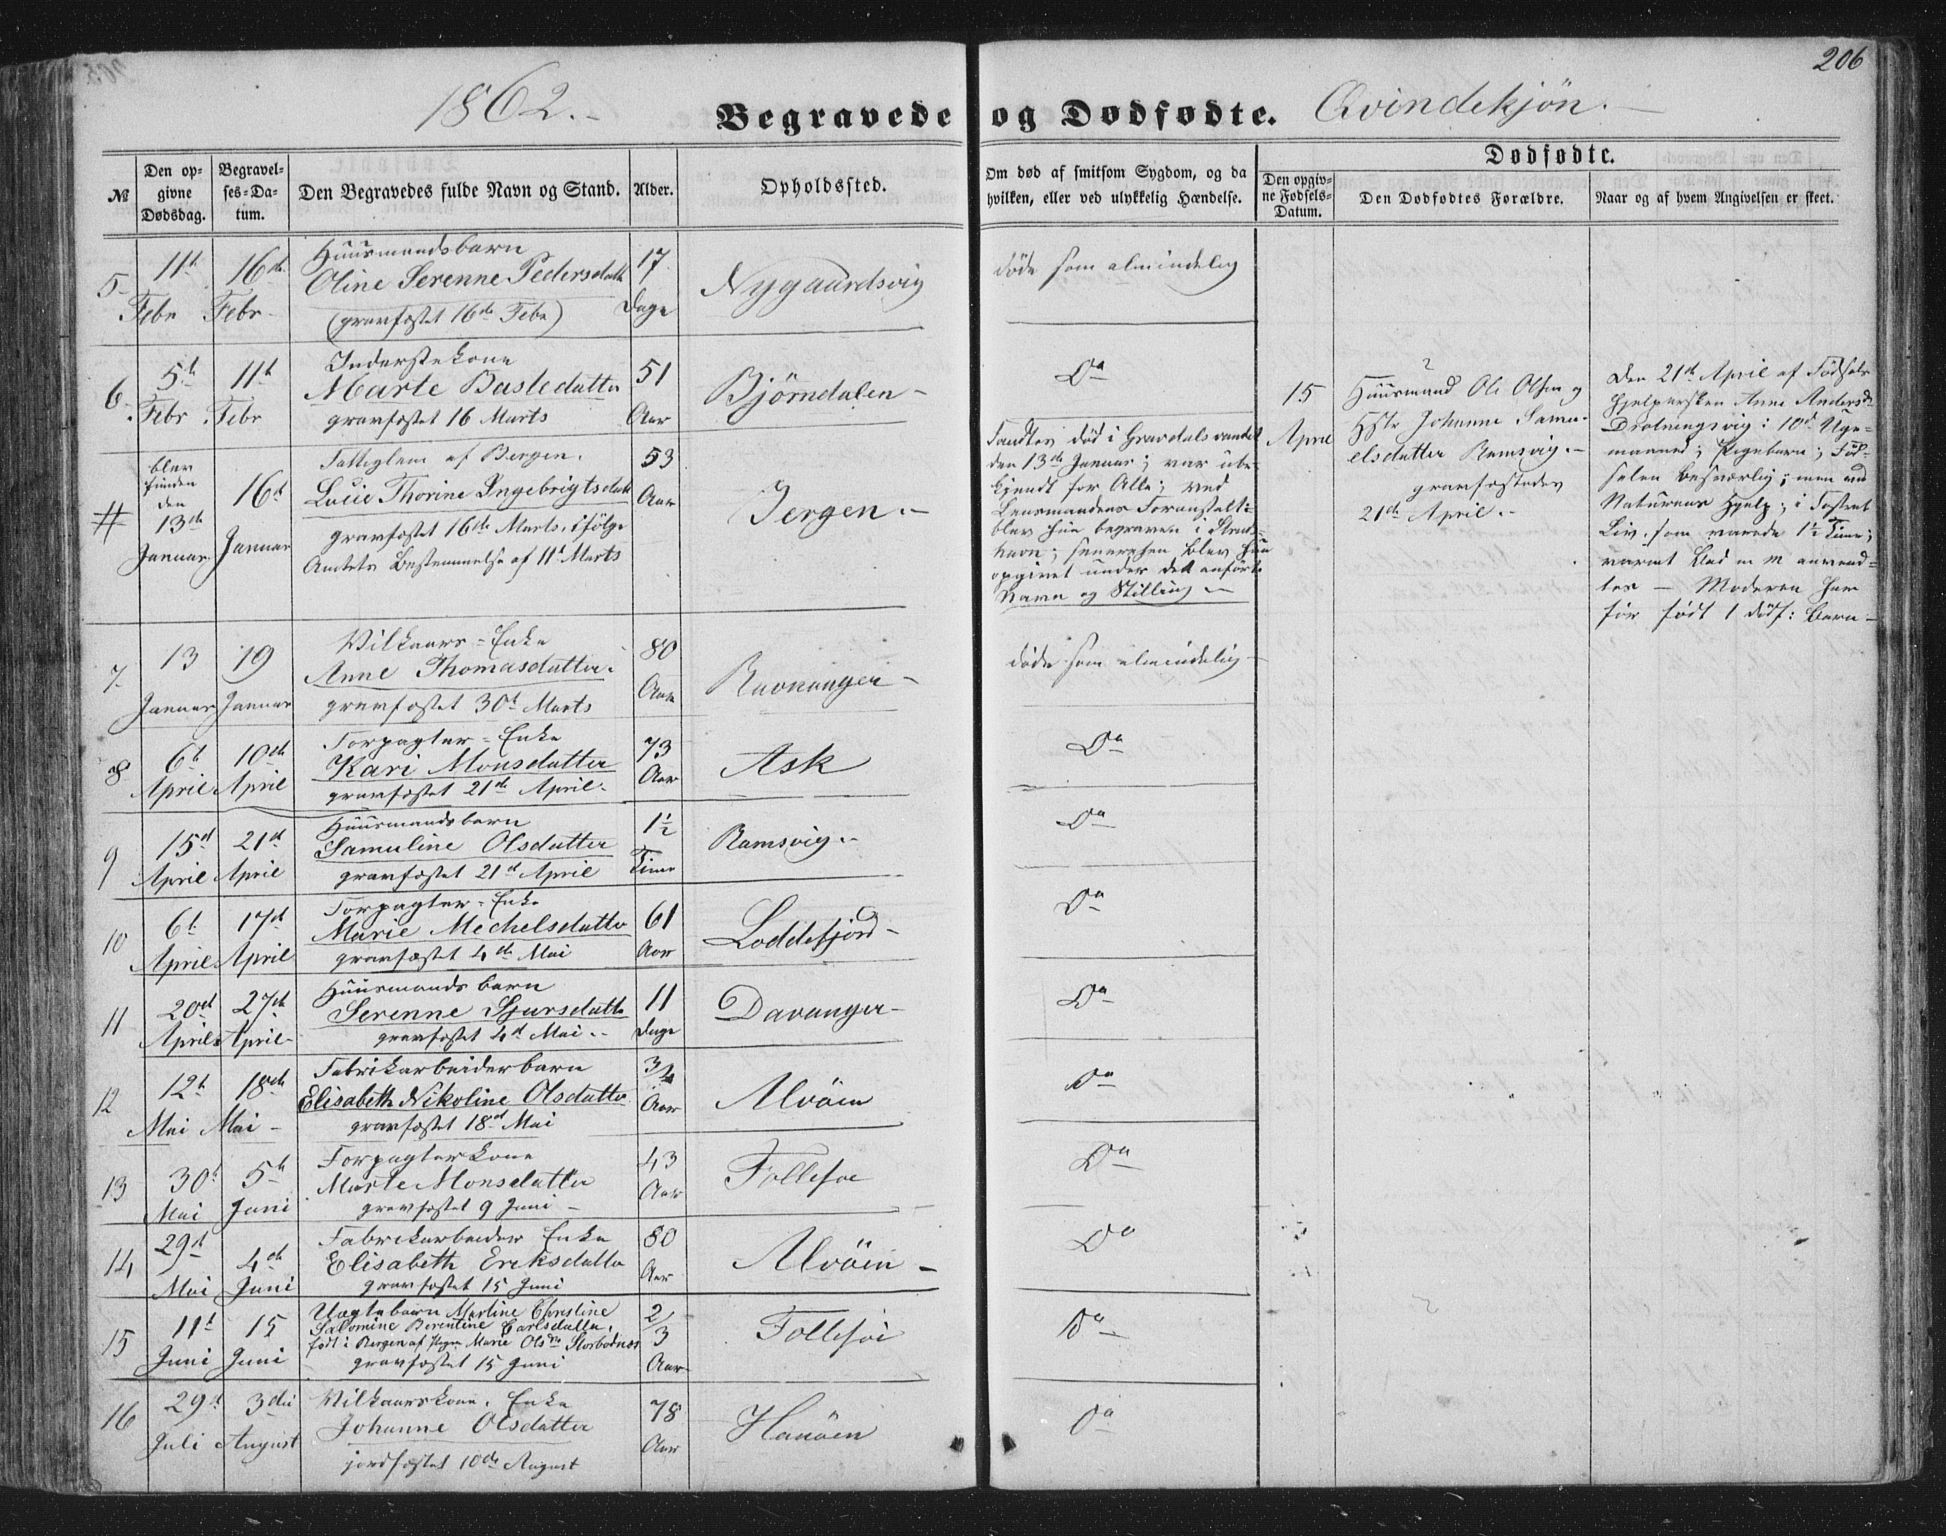 206
1862.-
Begravede og Dødfødte.
Qvindekjön.-
№
Den op-
givne
Dødsdag.
Begravel-
ses-Da-
tum.
Den Begravedes fulde Navn og Stand.
Alder.
Opholdssted.
Om død af smitsom Sygdom, og da
hvilken, eller ved ulykkelig Hændelse.
Dødfødte.
Den opgiv-
ne Fødsels-
Datum.
Den Dødfødtes Forældre.
Naar og af hvem Angivelsen er skeet.
5
11te Febr
16de Febr.
Huusmandsbarn
Oline Serenne Pedersdatt
(gravfæstet 16de Febr)
17 Dage
Nygaardsvig
døde som almindelig
6
5te Febr.
11te Febr
Inderstekone
Marte Bastedatter
gravfæstet 16 Marts
51 Aar
Björndalen -
Do
#
blev
funden
den
13de
Januar
16de Januar
Fattiglem af Bergen.
Lucie Thorine Ingebrigtsdatt
gravfæstet 16de Marts, ifølge
Amtets Bestemmelse af 11te Marts
53 Aar
Bergen.-
Fandtes död i Gravdalsvandet
den 13de Januar; var ube-
kjendt for Alle; ved
Lensmandens Foranstalt:
blev hun begraven i
Navn; senerehen blev hun
opgivet under det anförte
Navn og Stilling -
15
April
Huusmand Ole Olsen og
Hstr Johanne Samu-
elsdatter Ramsvig.-
gravfæstedes
21de April.-
Den 21de April af Födsels
Hjelpersken Anne Andersd:
Drotningsvig i 10de Uge-
maaned; Pigebarn; Föd-
selen besværlig; men ved
Naturens Hjelp; i Fostret
Liv, som varede 1½ Time;
varmt Bad m m anvend-
tes - Moderen har
för födt 1 dödf: Barn -
7.
13 Januar
19 Januar
Vilkaars-Enke
Anne Thomasdatter.
gravfæstet 30te Marts
80 Aar
Ravnanger -
døde som almindelig -
8
6te April
10de April
Forpagter-Enke
Kari Monsdatter
gravfæstet 21de April.
73 Aar
Ask
Do
9
15de April
21de April
Huusmandsbarn
Samuline Olsdatter
gravfæstet 21de April
1½ Time
Ramsvig.-
Do
10
6te April
17de April
Forpagter-Enke
Marie Mechelsdatter
gravfæstet 4de Mai
61 Aar
Loddefjord -
Do
11
20de April
27de April-
Huusmandsbarn
Serenne Sjursdatte
gravfæstet 4de Mai.-
11 Dage
Davanger-
Do
12
12te Mai
18de Mai -
Fabrikarbeiderbarn
Elisabeth Nikoline Olsdatter
gravfæstet 18de Mai
3/4 Aar
Alvöen
Do
13
30te Mai
5te Juni
Forpagterkone
Marte Monsdatter
gravfæstet 9 Juni -
43 Aar
Follesøe
Do
14
29de Mai
4de Juni
Fabrikarbeider Enke
Elisabeth Eriksdatter
gravfæstet 15 Juni
80 Aar
Alvöen -
Do
15
11te Juni
15 Juni
Uægtebarn Martine Christine
Salomine Berentine Carlsdatter.
født i Bergen af Pigen Marie Olsdtr Storbotnes
gravfæstet 15 Juni
2/3 Aar
Follesöe
Do
16
29de Juli
3die August
Vilkaarskone, Enke
Johanne Olsdatter
jordfæstet 10de August
78 Aar
Hanöen
Do